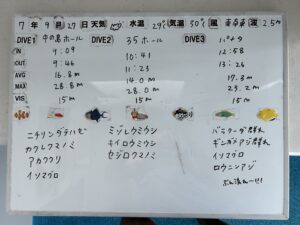 7年9月27日 天気 水温29℃ 気温30℃ 風 東 波2.5m
DIVE1 中の島ホール DIVE2 35ホール DIVE3 バラタ
IN 9:09 10:41 12:58
OUT 9:46 11:23 13:26
AVG 16.8m 14.0m 17.3m
MAX 28.8m 28.0m 23.2m
VIS 15m 15m 15m
ニチリンダテハゼ ミゾレウミウシ バラクーダ群れ
カクレクマノミ キイロウミウシ ギンガメアジ群れ
アカククリ セジロクマノミ イソマグロ
イソマグロ ロウニンアジ